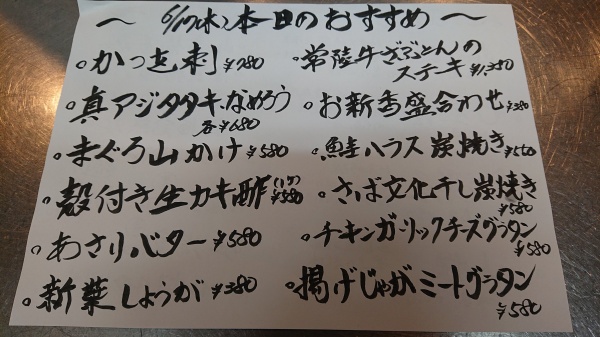 〜 6/17(木) 本日のおすすめ 〜
。かつお刺 ¥780
。真アジタタキ・なめろう
各¥680
。まぐろ山かけ ¥580
。殻付き生カキ酢 (1ケ) ¥580
。あさりバター ¥580
。新葉しょうが ¥380
。常陸牛ざぶとんの
ステーキ ¥1,380
。お新香盛合わせ ¥380
。鮭ハラス炭焼き ¥560
。さば文化干し炭焼き
¥580
。チキンガーリックチーズグラタン
¥580
。揚げじゃがミートグラタン
¥580